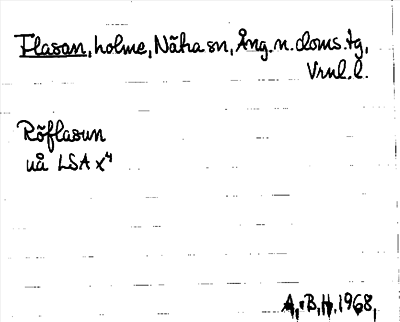 Flasan, holme, Nära sn, Ång. n. doms. tg,
Vrml. l.
Röflasun
uå LSA x⁴
A. B. H. 1968,